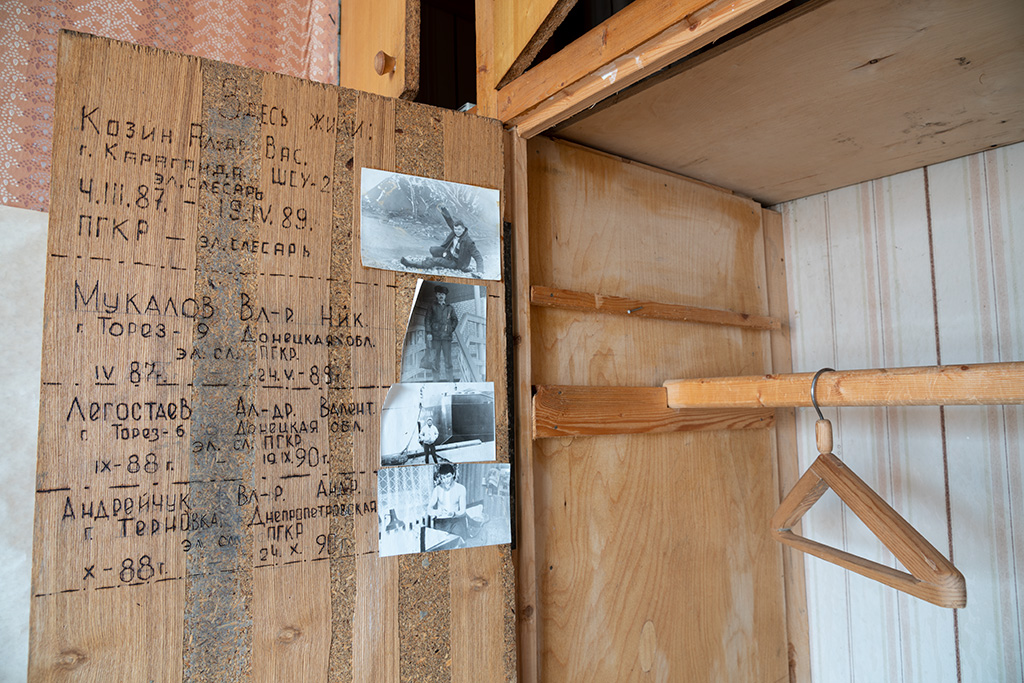 Здесь жили:
Козин Ал-др. Вас.
г. Караганда. ШСУ-2
эл. слесарь
4.III.87. – 19.IV.89.
ПГКР – эл. слесарь
Мукалов Вл-р. Ник.
г. Торез-9 Донецкая обл.
эл. сл. ПГКР.
IV 87г. – 24.V-89
Легостаев Ал-др. Валент.
г. Торез-6 Донецкая обл.
эл. сл. ПГКР
IX-88 г. 19.IX.90г.
Андрейчук Вл-р. Андр.
г. Терновка Днепропетровская
эл. сл. ПГКР
X-88г. 24.X.90г.